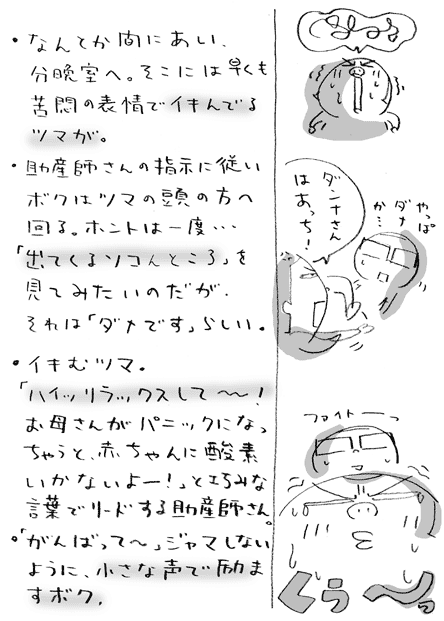 ・なんとか間にあい、
分晩室へ。そこには早くも
苦悶の表情でイキんでる
ツマが。
・助産師さんの指示に従い
ボクはツマの頭の方へ
回る。ホントは一度…
「出てくるソコんところ」を
見てみたいのだが、
それは「ダメです」らしい。
・イキむツマ。
「ハイッリラックスして〜〜！
お母さんがパニックになっ
ちゃうと、赤ちゃんに酸素
いかないよー！」と巧みな
言葉でリードする助産師さん。
・「がんばって〜」ジャマしない
ように、小さな声で励ま
すボク。
ダンナさん
はあっち！
やっぱ
ダメ
か…
ファイトーっ
くぅ〜っ